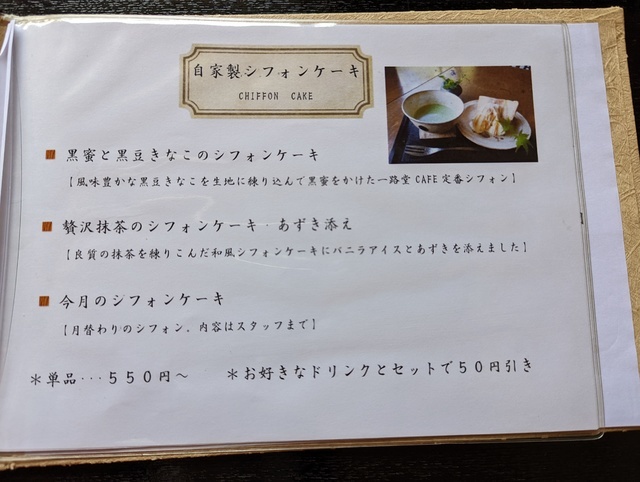 自家製シフォンケーキ
CHIFFON CAKE
黒蜜と黒豆きなこのシフォンケーキ
【風味豊かな黒豆きなこを生地に練り込んで黒蜜をかけた一路堂CAFE定番シフォン】
贅沢抹茶のシフォンケーキ・あずき添え
【良質の抹茶を練りこんだ和風シフォンケーキにバニラアイスとあずきを添えました】
今月のシフォンケーキ
【月替わりのシフォン。内容はスタッフまで】
＊単品‥‥５５０円～ ＊お好きなドリンクとセットで５０円引き